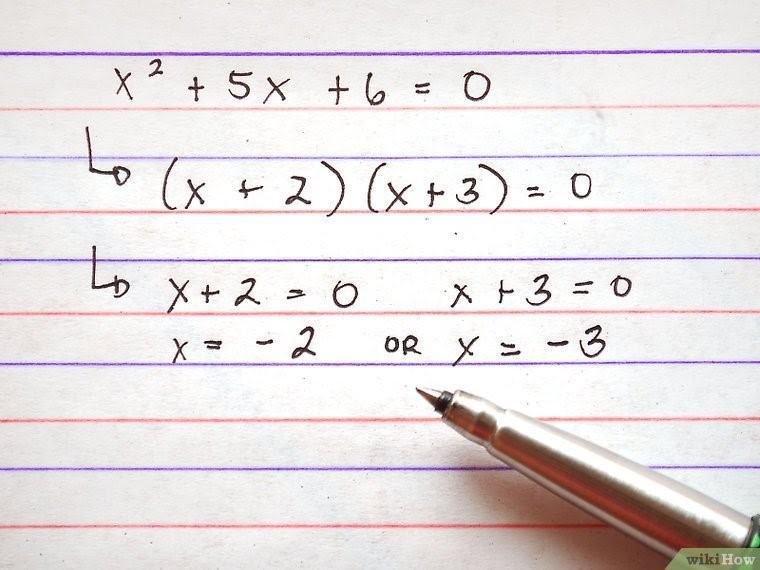 x² + 5x + 6 = 0
(x + 2) (x + 3) = 0
x + 2 = 0 x + 3 = 0
x = - 2 OR x = - 3
wikiHow